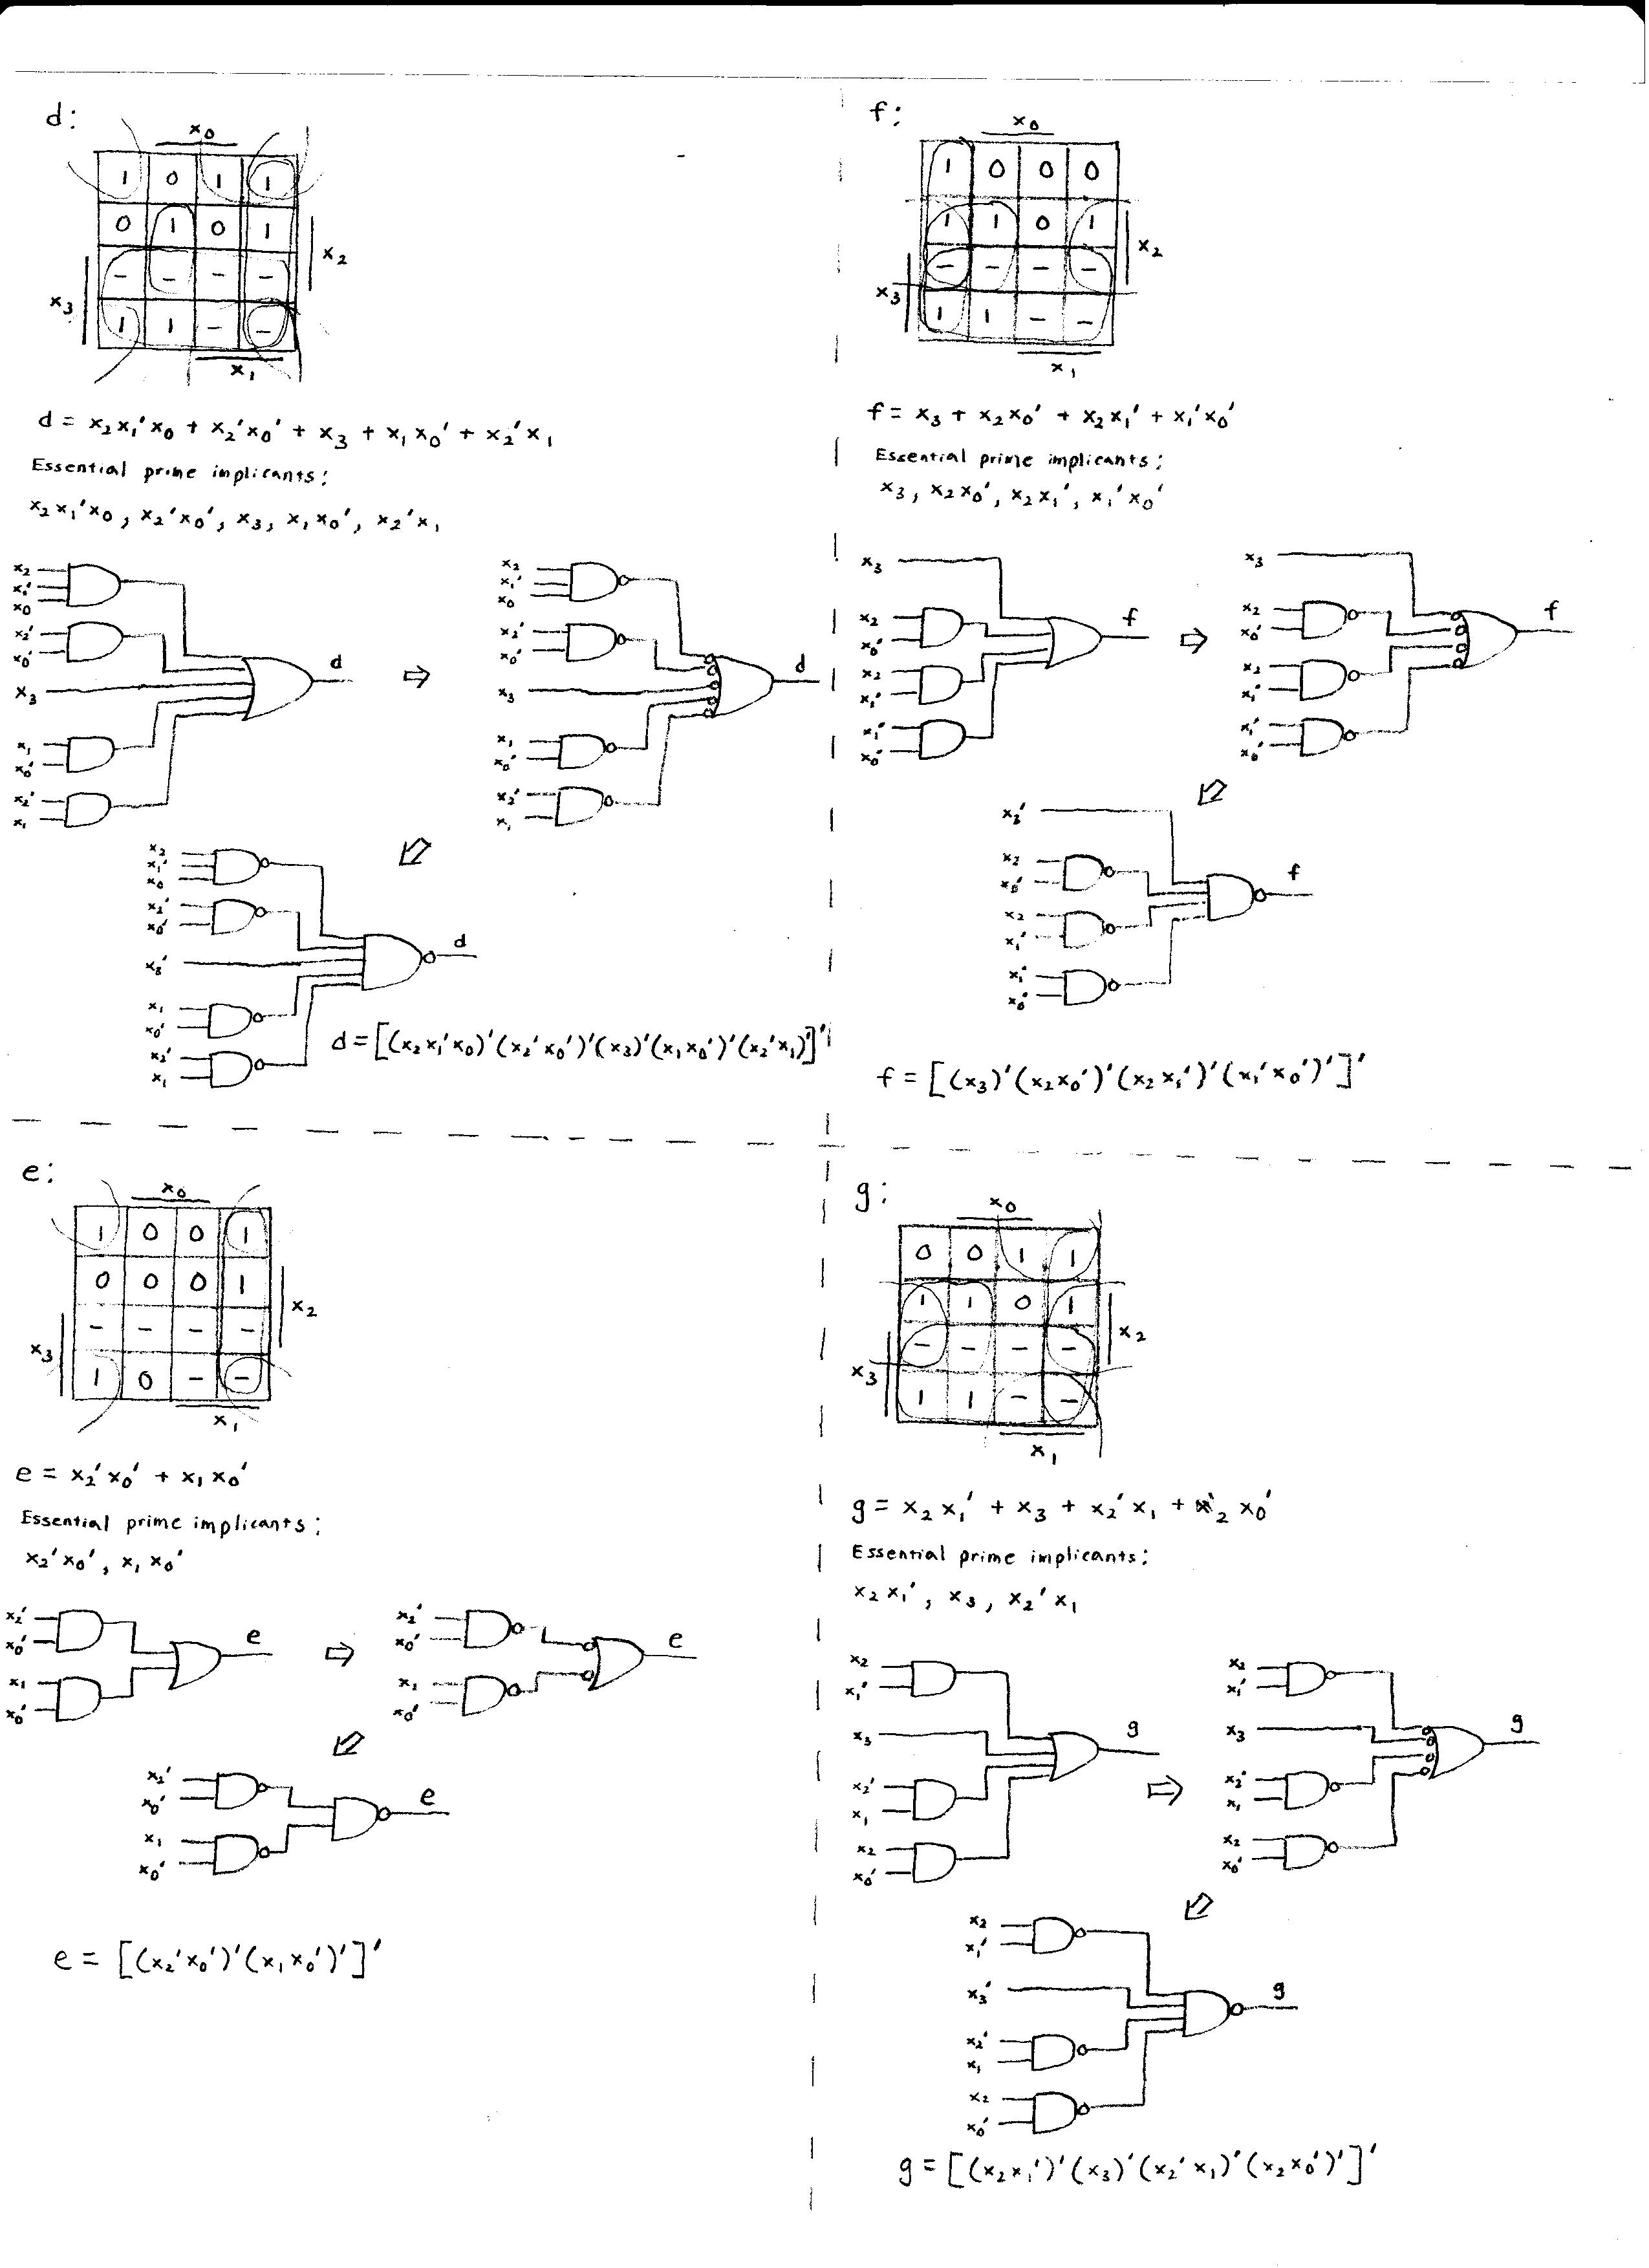 d:
x₀
1 0 1 1
0 1 0 1
x₂
- - - -
x₃
1 1 - -
x₁
d = x₂x₁'x₀ + x₂'x₀' + x₃ + x₁x₀' + x₂'x₁
Essential prime implicants:
x₂x₁'x₀, x₂'x₀', x₃, x₁x₀', x₂'x₁
x₂
x₁'
x₀
x₂'
x₀'
x₃
x₁
x₀'
x₂'
x₁
d
⇨
x₂
x₁'
x₀
x₂'
x₀'
x₃
x₁
x₀'
x₂'
x₁
d
x₂
x₁'
x₀
x₂'
x₀'
x₃'
x₁
x₀'
x₂'
x₁
d
d = [(x₂x₁'x₀)'(x₂'x₀')'(x₃)'(x₁x₀')'(x₂'x₁)']'
f:
x₀
1 0 0 0
1 1 0 1
x₂
- - - -
x₃
1 1 - -
x₁
f = x₃ + x₂x₀' + x₂x₁' + x₁'x₀'
Essential prime implicants:
x₃, x₂x₀', x₂x₁', x₁'x₀'
x₃
x₂
x₀'
x₂
x₁'
x₁'
x₀'
f
⇨
x₃
x₂
x₀'
x₂
x₁'
x₁'
x₀'
f
x₃'
x₂
x₀'
x₂
x₁'
x₁'
x₀'
f
f = [(x₃)'(x₂x₀')'(x₂x₁')'(x₁'x₀')']'
e:
x₀
1 0 0 1
0 0 0 1
x₂
- - - -
x₃
1 0 - -
x₁
e = x₂'x₀' + x₁x₀'
Essential prime implicants:
x₂'x₀', x₁x₀'
x₂'
x₀'
x₁
x₀'
e
⇨
x₂'
x₀'
x₁
x₀'
e
x₂'
x₀'
x₁
x₀'
e
e = [(x₂'x₀')'(x₁x₀')']'
g:
x₀
0 0 1 1
1 1 0 1
x₂
- - - -
x₃
1 1 - -
x₁
g = x₂x₁' + x₃ + x₂'x₁ + x₂x₀'
Essential prime implicants:
x₂x₁', x₃, x₂'x₁
x₂
x₁'
x₃
x₂'
x₁
x₂
x₀'
g
⇨
x₂
x₁'
x₃
x₂'
x₁
x₂
x₀'
g
x₂
x₁'
x₃'
x₂'
x₁
x₂
x₀'
g
g = [(x₂x₁')'(x₃)'(x₂'x₁)'(x₂x₀')']'